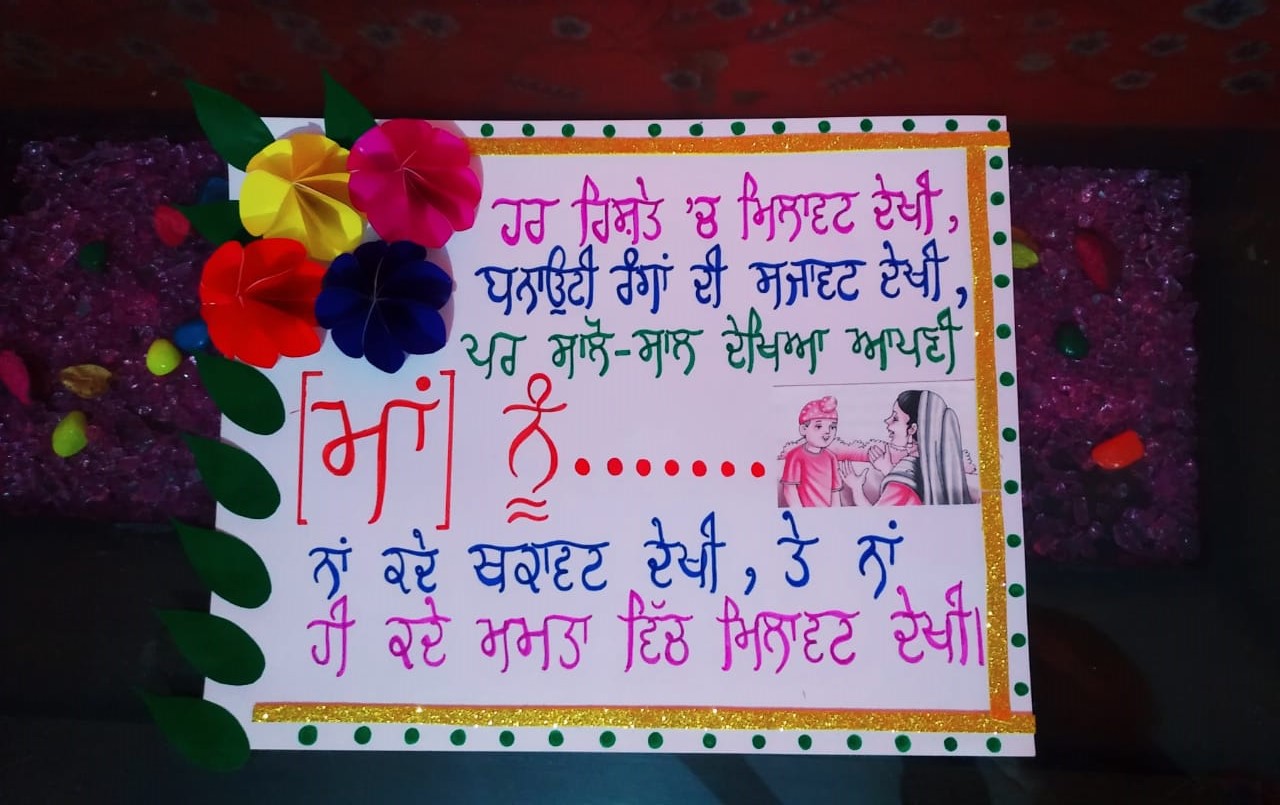 ਹਰ ਰਿਸ਼ਤੇ 'ਚ ਮਿਲਾਵਟ ਦੇਖੀ,
ਬਨਾਉਟੀ ਰੰਗਾਂ ਦੀ ਸਜਾਵਟ ਦੇਖੀ,
ਪਰ ਸਾਲੋ-ਸਾਲ ਦੇਖਿਆ ਆਪਣੀ
[ਮਾਂ] ਨੂੰ.......
ਨਾਂ ਕਦੇ ਥਕਾਵਟ ਦੇਖੀ, ਤੇ ਨਾਂ
ਹੀ ਕਦੇ ਮਮਤਾ ਵਿੱਚ ਮਿਲਾਵਟ ਦੇਖੀ।